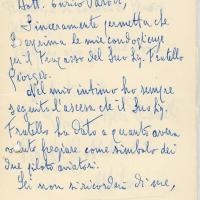 Dott. Enrico Parodi,
Sinceramente permetta che
Le esprima le mie condoglianze
per il trapasso del Suo Sig. Fratello
Giorgio.
Nel mio intimo ho sempre
seguito l'ascesa che il Suo Sig.
Fratello ha dato a quanto aveva
voluto fregiare come simbolo dei
due piloti aviatori.
Lei non si ricorderà di me,